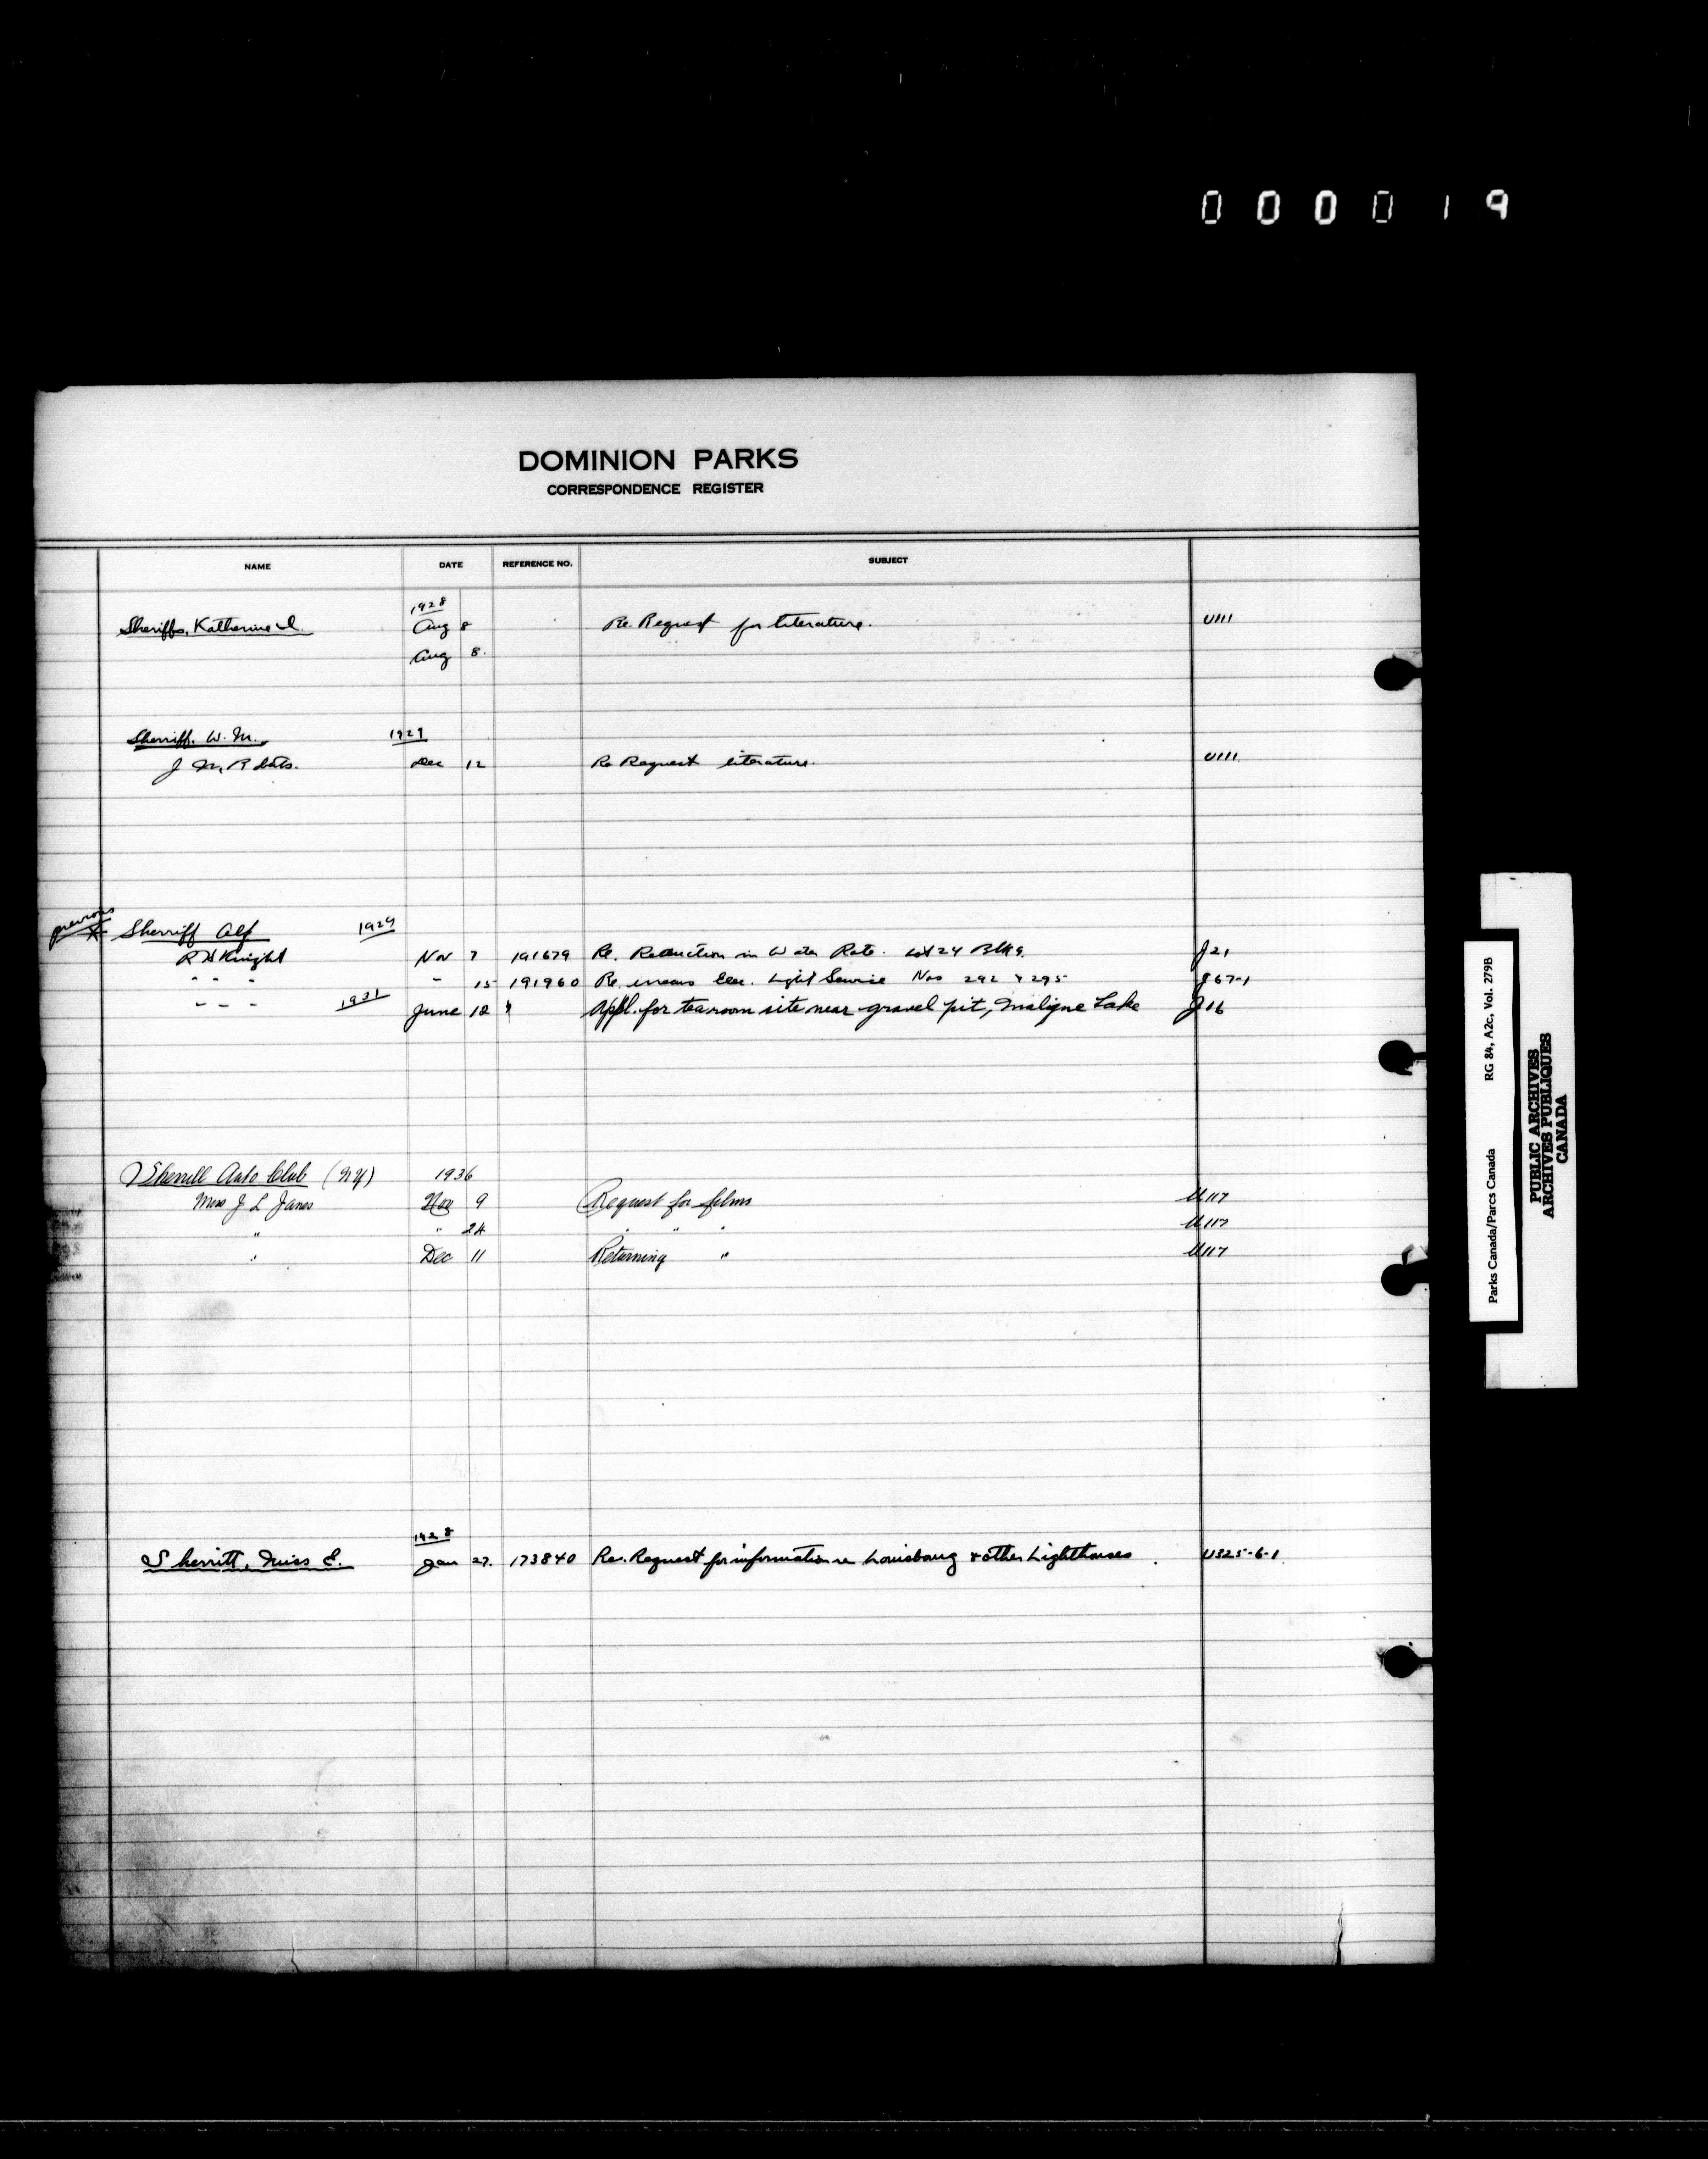 000019
DOMINION PARKS
CORRESPONDENCE REGISTER
NAME DATE REFERENCE NO. SUBJECT
1928
Sheriffs, Katherine I. Aug 8 Re. Request for literature. U111
Aug 8.
Sherriff. W. M. 1929
J M, Dec 12 Re Request literature. U111
previous
Sherriff Alf 1929
R H Knight Nov 7 191679 Re. Reduction in Water Rate. Lot 24 Blk 9. J21
" " " " 15 191960 Re Elec. Light Service Nos 292 & 295 J67-1
" " " 1931 June 12 Appl. for tearoom site near gravel pit, Maligne Lake J16
Sherrill Auto Club (NY) 1936
J L Janes Nov 9 Request for films U117
" " 24 " " " U117
" Dec 11 Returning " U117
1928
Sherritt, Miss E. Jan 27. 173840 Re. Request for information re Louisbourg & other Lighthouses. U325-6-1
Parks Canada/Parcs Canada RG 84, A2c, Vol. 279B
PUBLIC ARCHIVES
ARCHIVES PUBLIQUES
CANADA